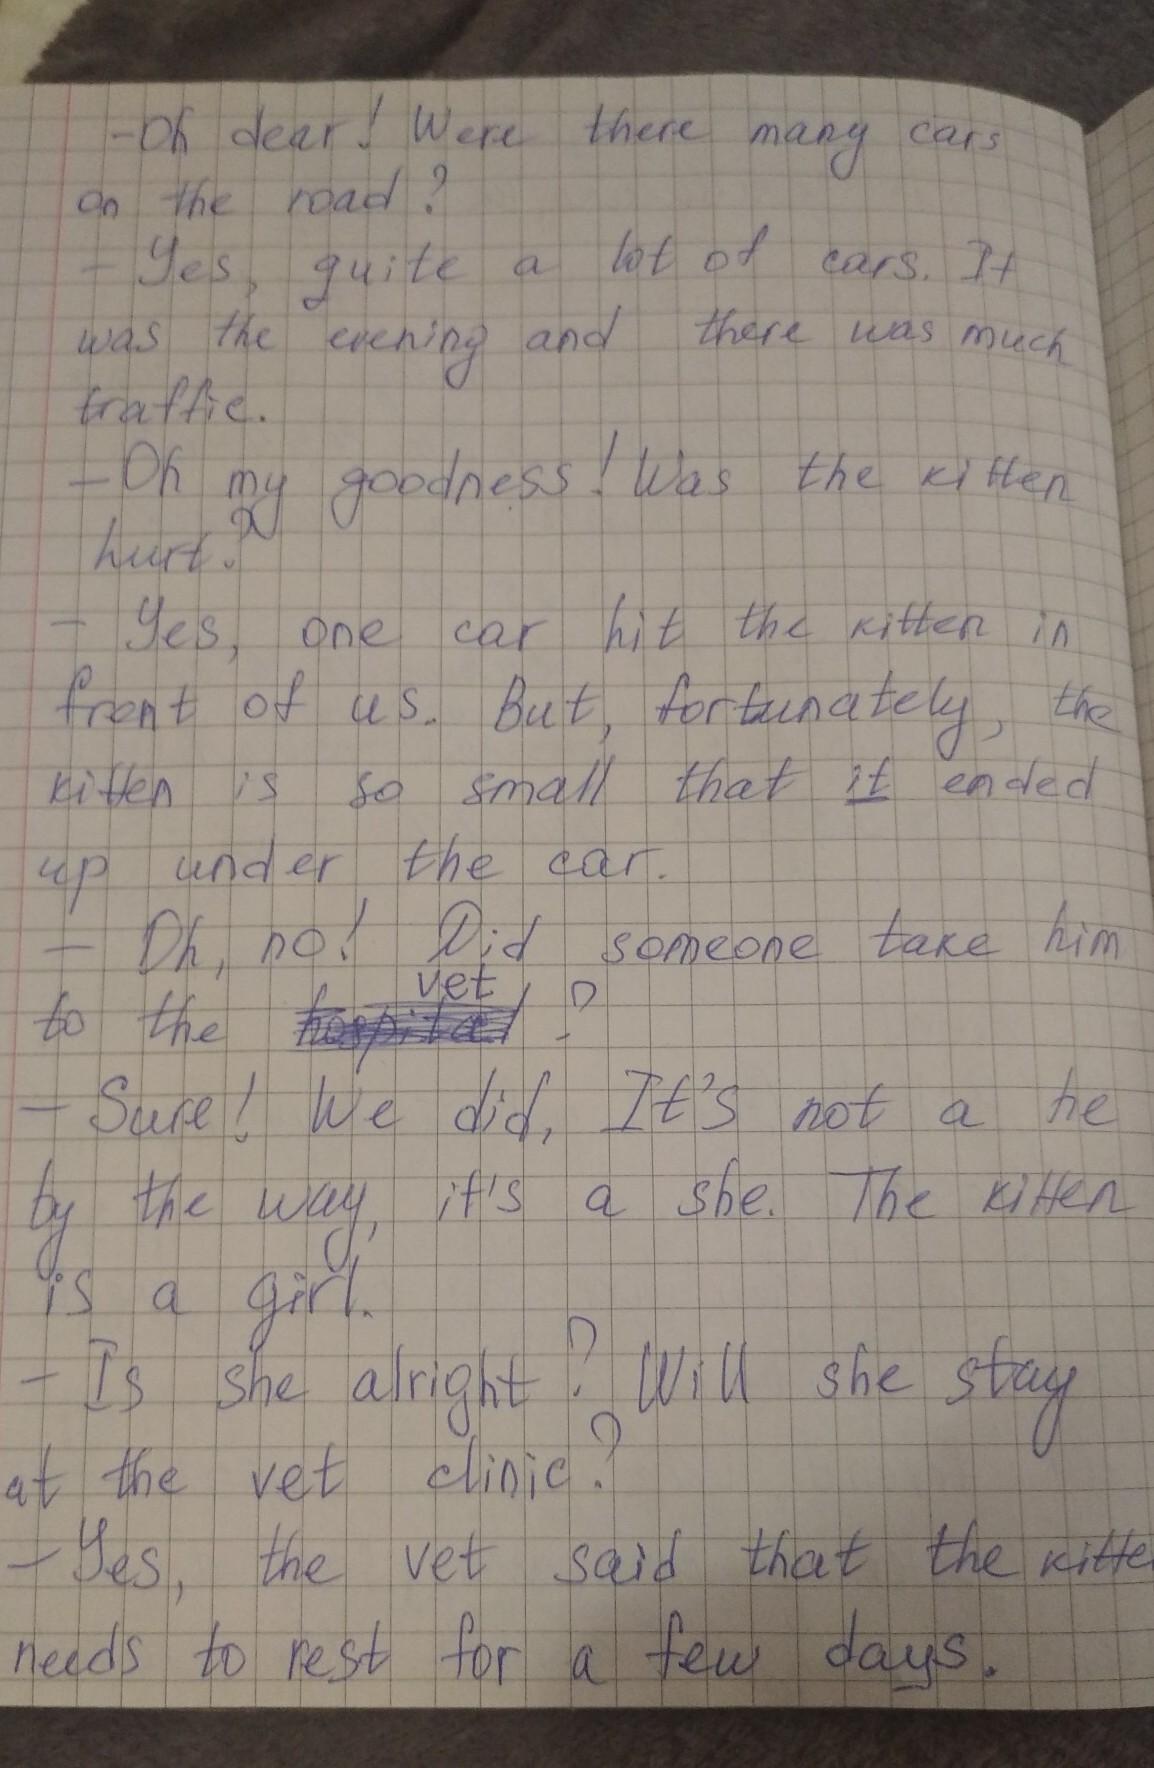 -Oh dear! Were there many cars
on the road?
- Yes, quite a lot of cars. It
was the evening and there was much
traffic.
- Oh my goodness! Was the kitten
hurt?
- Yes, one car hit the kitten in
front of us. But, fortunately, the
kitten is so small that it ended
up under the car.
- Oh, no! Did someone take him
vet
to the hospital ?
- Sure! We did, It's not a he
by the way, it's a she. The kitten
is a girl.
- Is she alright? Will she stay
at the vet clinic?
- Yes, the vet said that the kitte
needs to rest for a few days.